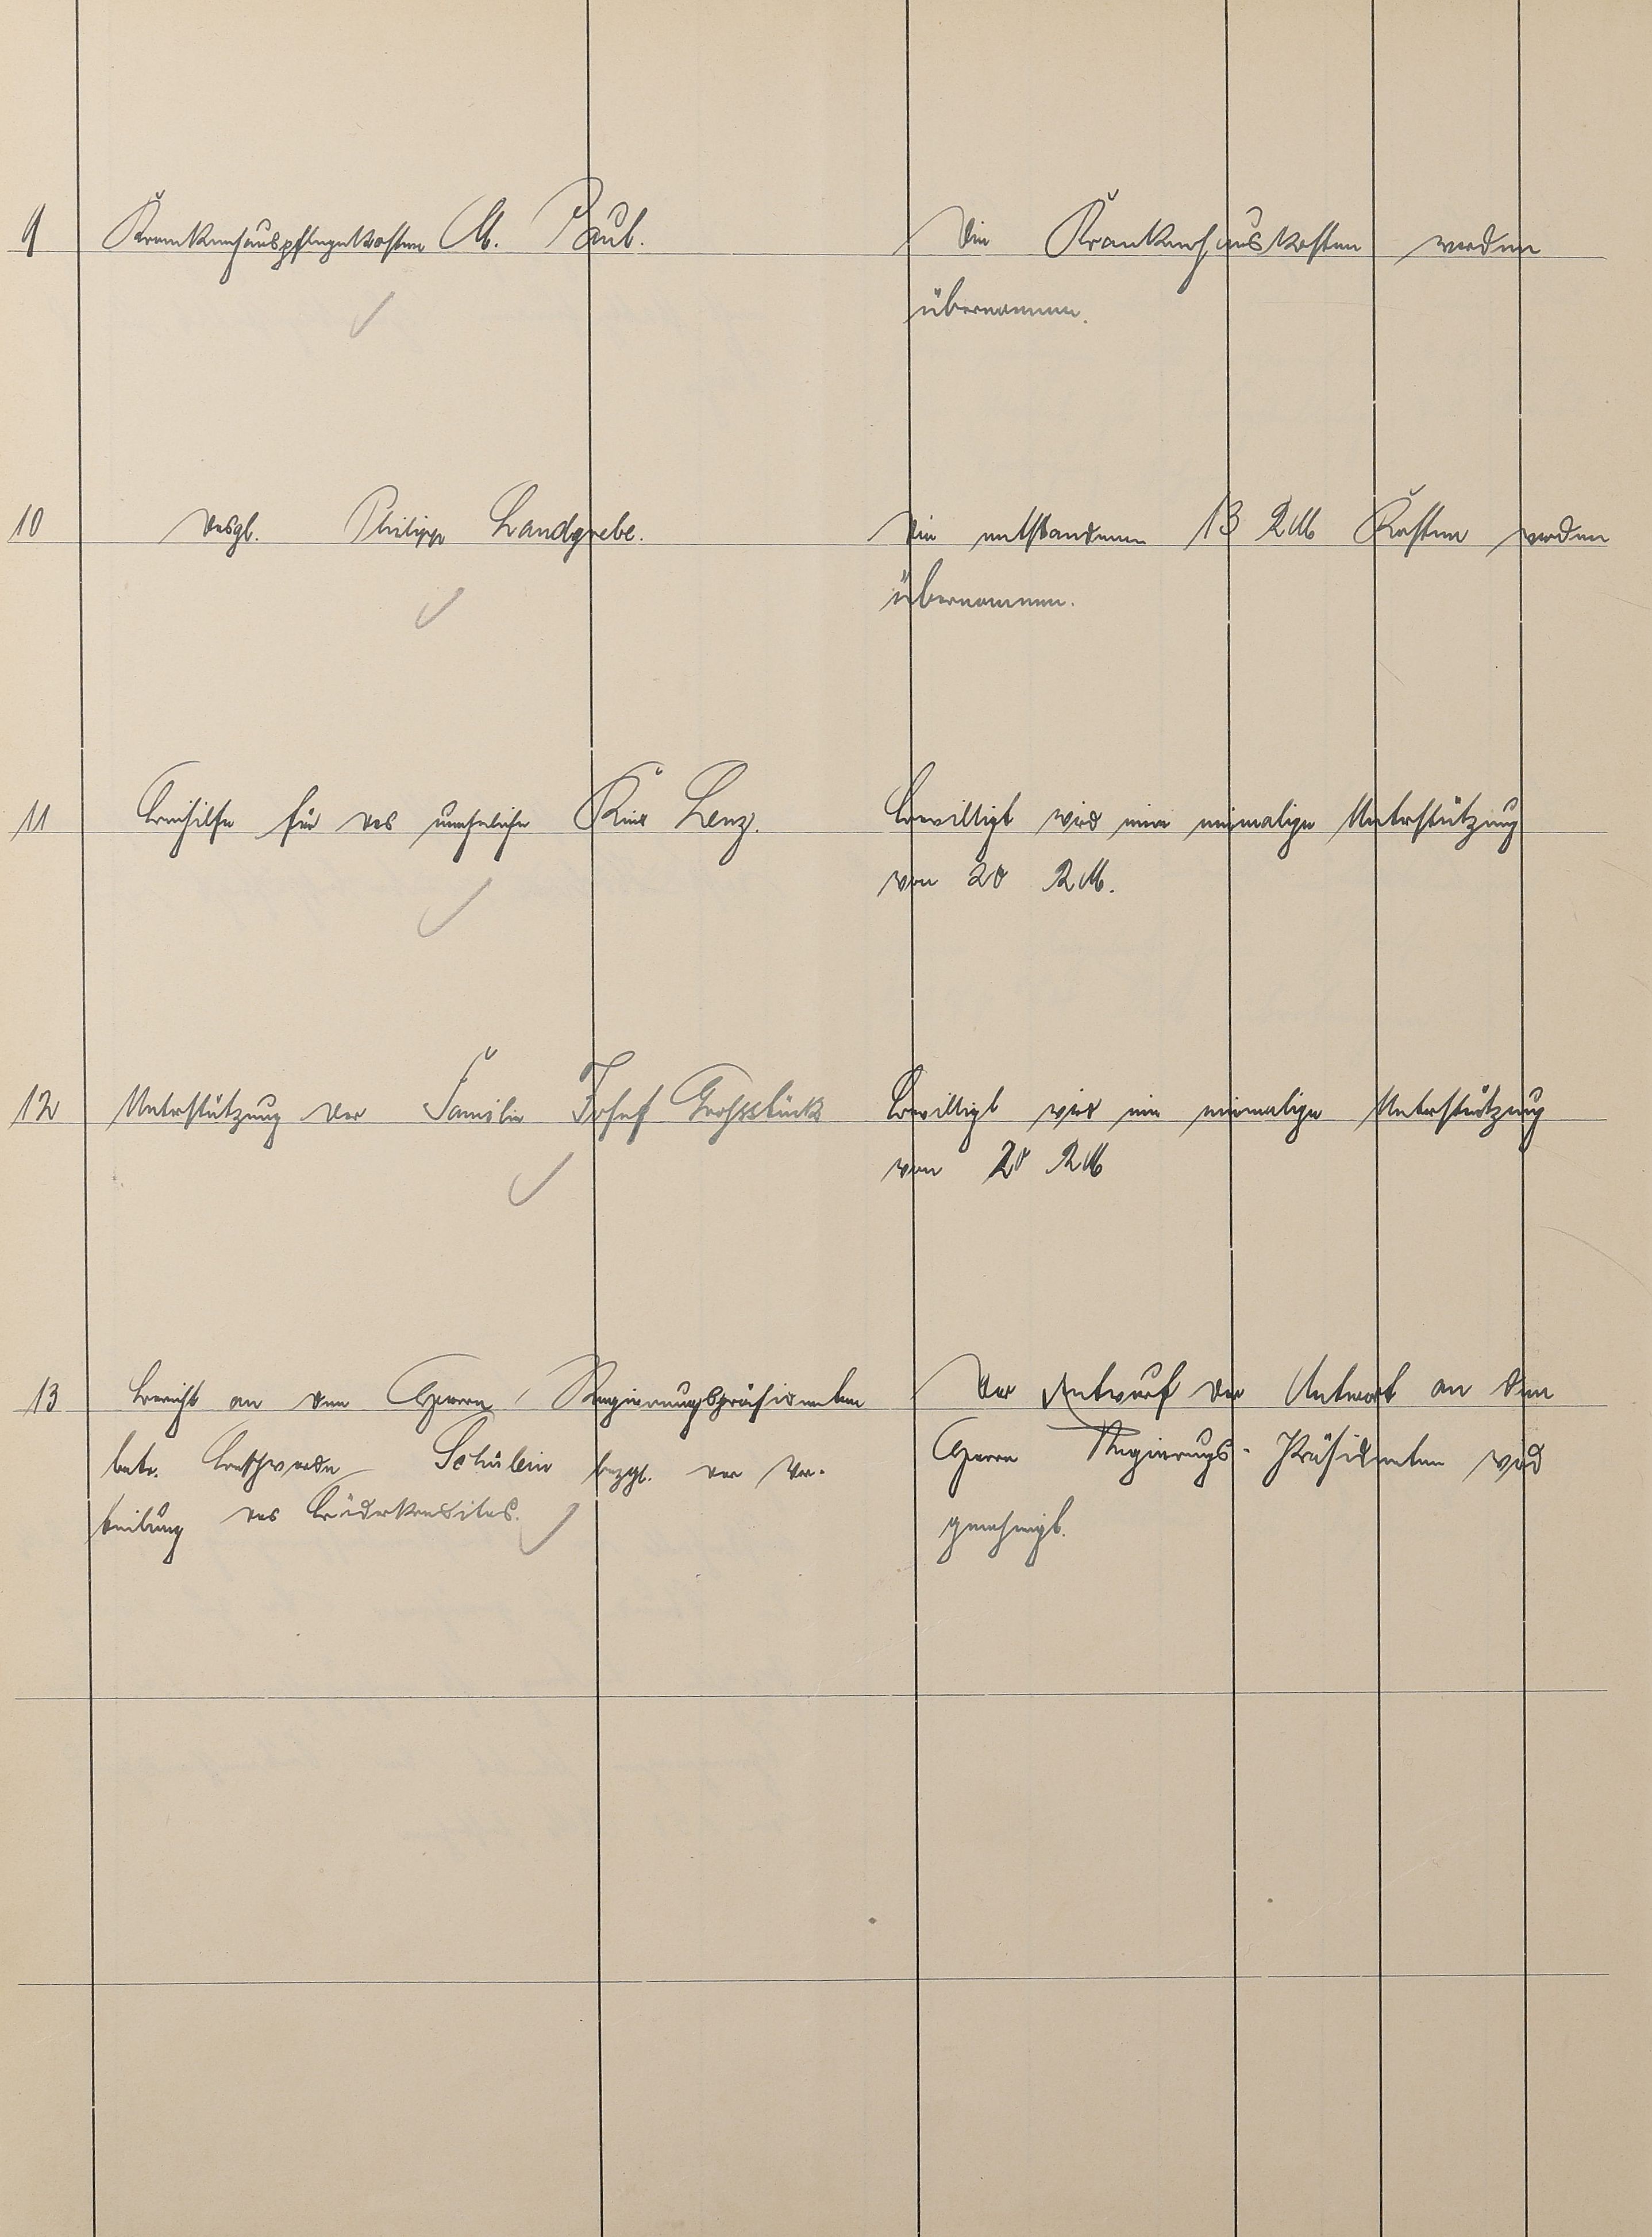 9 Krankenhauspflegekosten M. Paul. Die Krankenhauskosten werden
übernommen.
10 desgl. Philipp Landgrebe. Die entstandenen 13 RM Kosten werden
übernommen.
11 Beihilfe für das uneheliche Kind Lenz. Bewilligt wird eine einmalige Unterstützung
von 20 RM.
12 Unterstützung der Familie Josef Grohsstück Bewilligt wird eine einmalige Unterstützung
von 20 RM
13 Bericht an den Herrn Regierungspräsidenten Der Entwurf der Antwort an den
betr. Beschwerde Schülein bezgl. der Ver- Herrn Regierungs-Präsidenten wird
teilung des genehmigt.